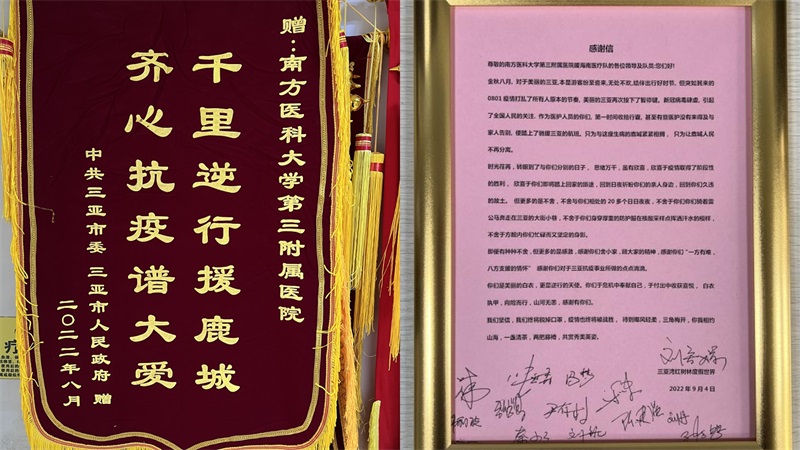 赠：南方医科大学第三附属医院
千里逆行援鹿城
齐心抗疫谱大爱
中共三亚市委 三亚市人民政府 赠
二〇二二年八月
疗
感谢信
尊敬的南方医科大学第三附属医院援海南医疗队的各位领导及队员:您们好!
金秋八月,对于美丽的三亚,本是游客纷至沓来,无处不欢,结伴出行好时节,但突如其来的
0801疫情打乱了所有人原本的节奏,美丽的三亚再次按下了暂停键,新冠病毒肆虐,引起
了全国人民的关注,作为医护人员的你们,第一时间收拾行囊,甚至有些医护没有来得及与
家人告别,便踏上了驰援三亚的航班,只为与这座生病的鹿城紧紧相拥, 只为让鹿城人民
不再分离。
时光荏苒,转眼到了与你们分别的日子, 思绪万千,虽有欣喜,欣喜于疫情取得了阶段性
的胜利, 欣喜于你们即将踏上回家的旅途,回到日夜祈盼你们的亲人身边,回到你们久违
的故土, 但更多的是不舍,不舍与你们相处的20多个日日夜夜,不舍于你们你们骑着雷
公马奔走在三亚的大街小巷,不舍于你们身穿厚重的防护服在核酸采样点挥洒汗水的模样,
不舍于方舱内你们忙碌而又坚定的身影。
即便有种种不舍,但更多的是感激,感谢你们舍小家,顾大家的精神,感谢你们"一方有难,
八方支援的情怀" 感谢你们对于三亚抗疫事业所做的点点滴滴。
你们是美丽的白衣,更是逆行的天使。你们于危机中奉献自己,于付出中收获喜悦, 白衣
执甲,向暗而行,山河无恙,感谢有你们。
我们坚信,我们终将脱掉口罩,疫情也终将被战胜, 待到椰风轻柔,三角梅开,你我相约
山海,一盏清茶,两把藤椅,共赏秀美亚姿。
三亚湾红树林度假世界
2022年9月4日